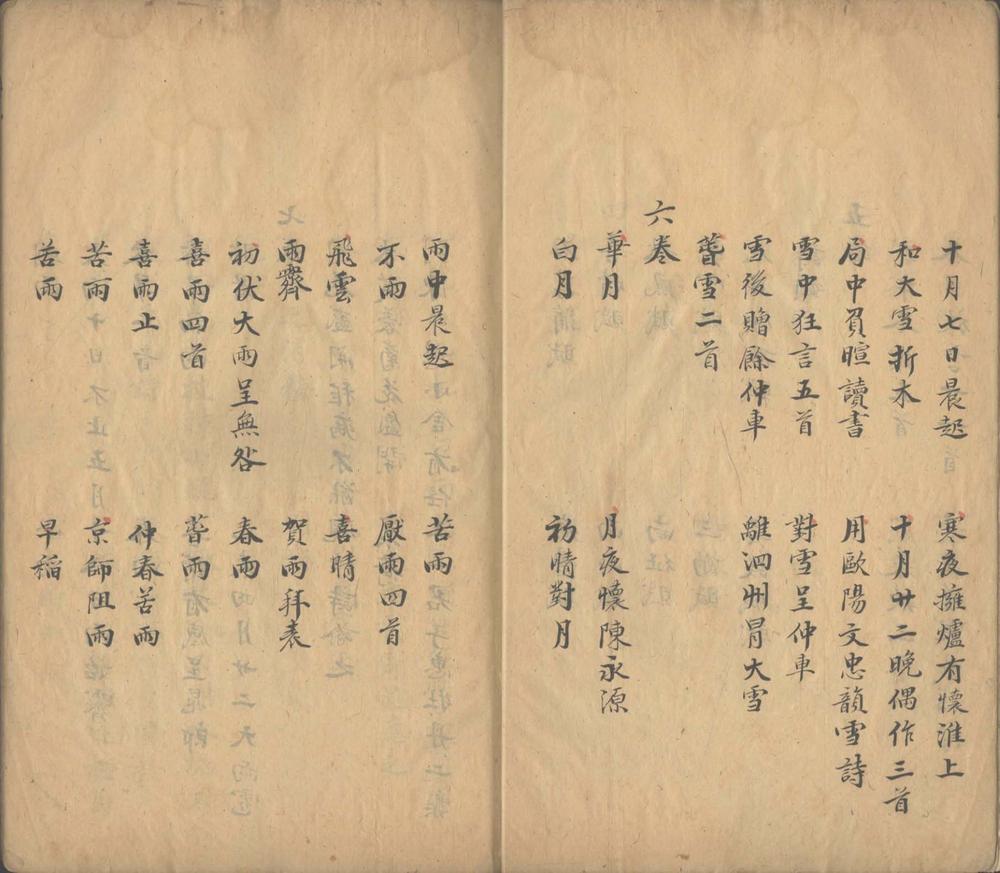 十月七日晨起 寒夜擁爐有懷淮上
和大雪折木 十月廿二晚偶作三首
局中負暄讀書 用歐陽文忠韻雪詩
雪中狂言五首 對雪呈仲車
雪後贈餘仲車 離泗州冐大雪
喜雪二首
六卷
華月 月夜懷陳永源
白月 初晴對月
雨中晨起 苦雨
不雨 厭雨四首
飛雲 喜晴
雨霽 賀雨拜表
初伏大雨呈無咎 春雨
喜雨四首 喜雨
喜雨止 仲春苦雨
苦雨 京師阻雨
苦雨 早稻